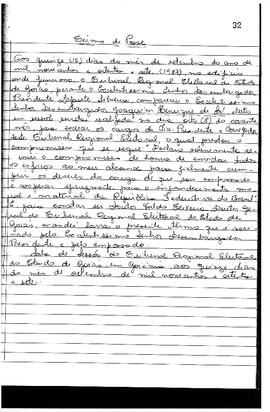 32
Termo de Posse
Aos quinze (15) dias do mês de setembro do ano de
mil novecentos e oitenta e sete (1987), no edifício
onde funciona o Tribunal Regional Eleitoral do Estado
de Goiás, perante o Excelentíssimo Senhor Desembargador
Presidente compareceu o Excelentíssimo
Senhor Desembargador Joaquim Henrique de Sá, eleito
em sessão secreta realizada no dia oito (8) do corrente
mês, para exercer os cargos de Vice-Presidente e Corregedor
deste Tribunal Regional Eleitoral, o qual prestou o
compromisso que se segue: "Declaro solenemente as-
sumir o compromisso de honra de envidar todos
os esforços ao meu alcance para fielmente cum-
prir os deveres do cargo de que sou empossado
e cooperar eficazmente para o engrandecimento moral
e material da República Federativa do Brasil".
E, para constar, eu Diretor Ge-
ral do Tribunal Regional Eleitoral do Estado de
Goiás, mandei lavrar o presente termo que é assi-
nado pelo Excelentíssimo Senhor Desembargador
Presidente e pelo empossado.
Sala de Sessão do Tribunal Regional Eleitoral
do Estado de Goiás em Goiânia, aos quinze dias
do mês de setembro de mil novecentos e oitenta
e sete.